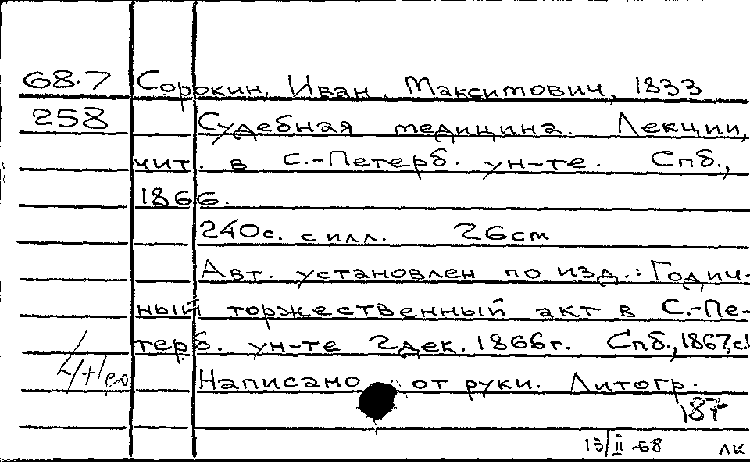 68.7 Сорокин, Иван Максимович, 1833
258 Судебная медицина. Лекции,
чит. в С.-Петерб. ун-те. Спб.,
1866.
240с. с илл. 26cm
Авт. установлен по изд.: Годич-
ный торжественный акт в С.-Пе-
терб. ун-те 2 дек. 1866г. Спб., 1867, с.
Написано от руки. Литогр.
187
13/II-68 ЛК